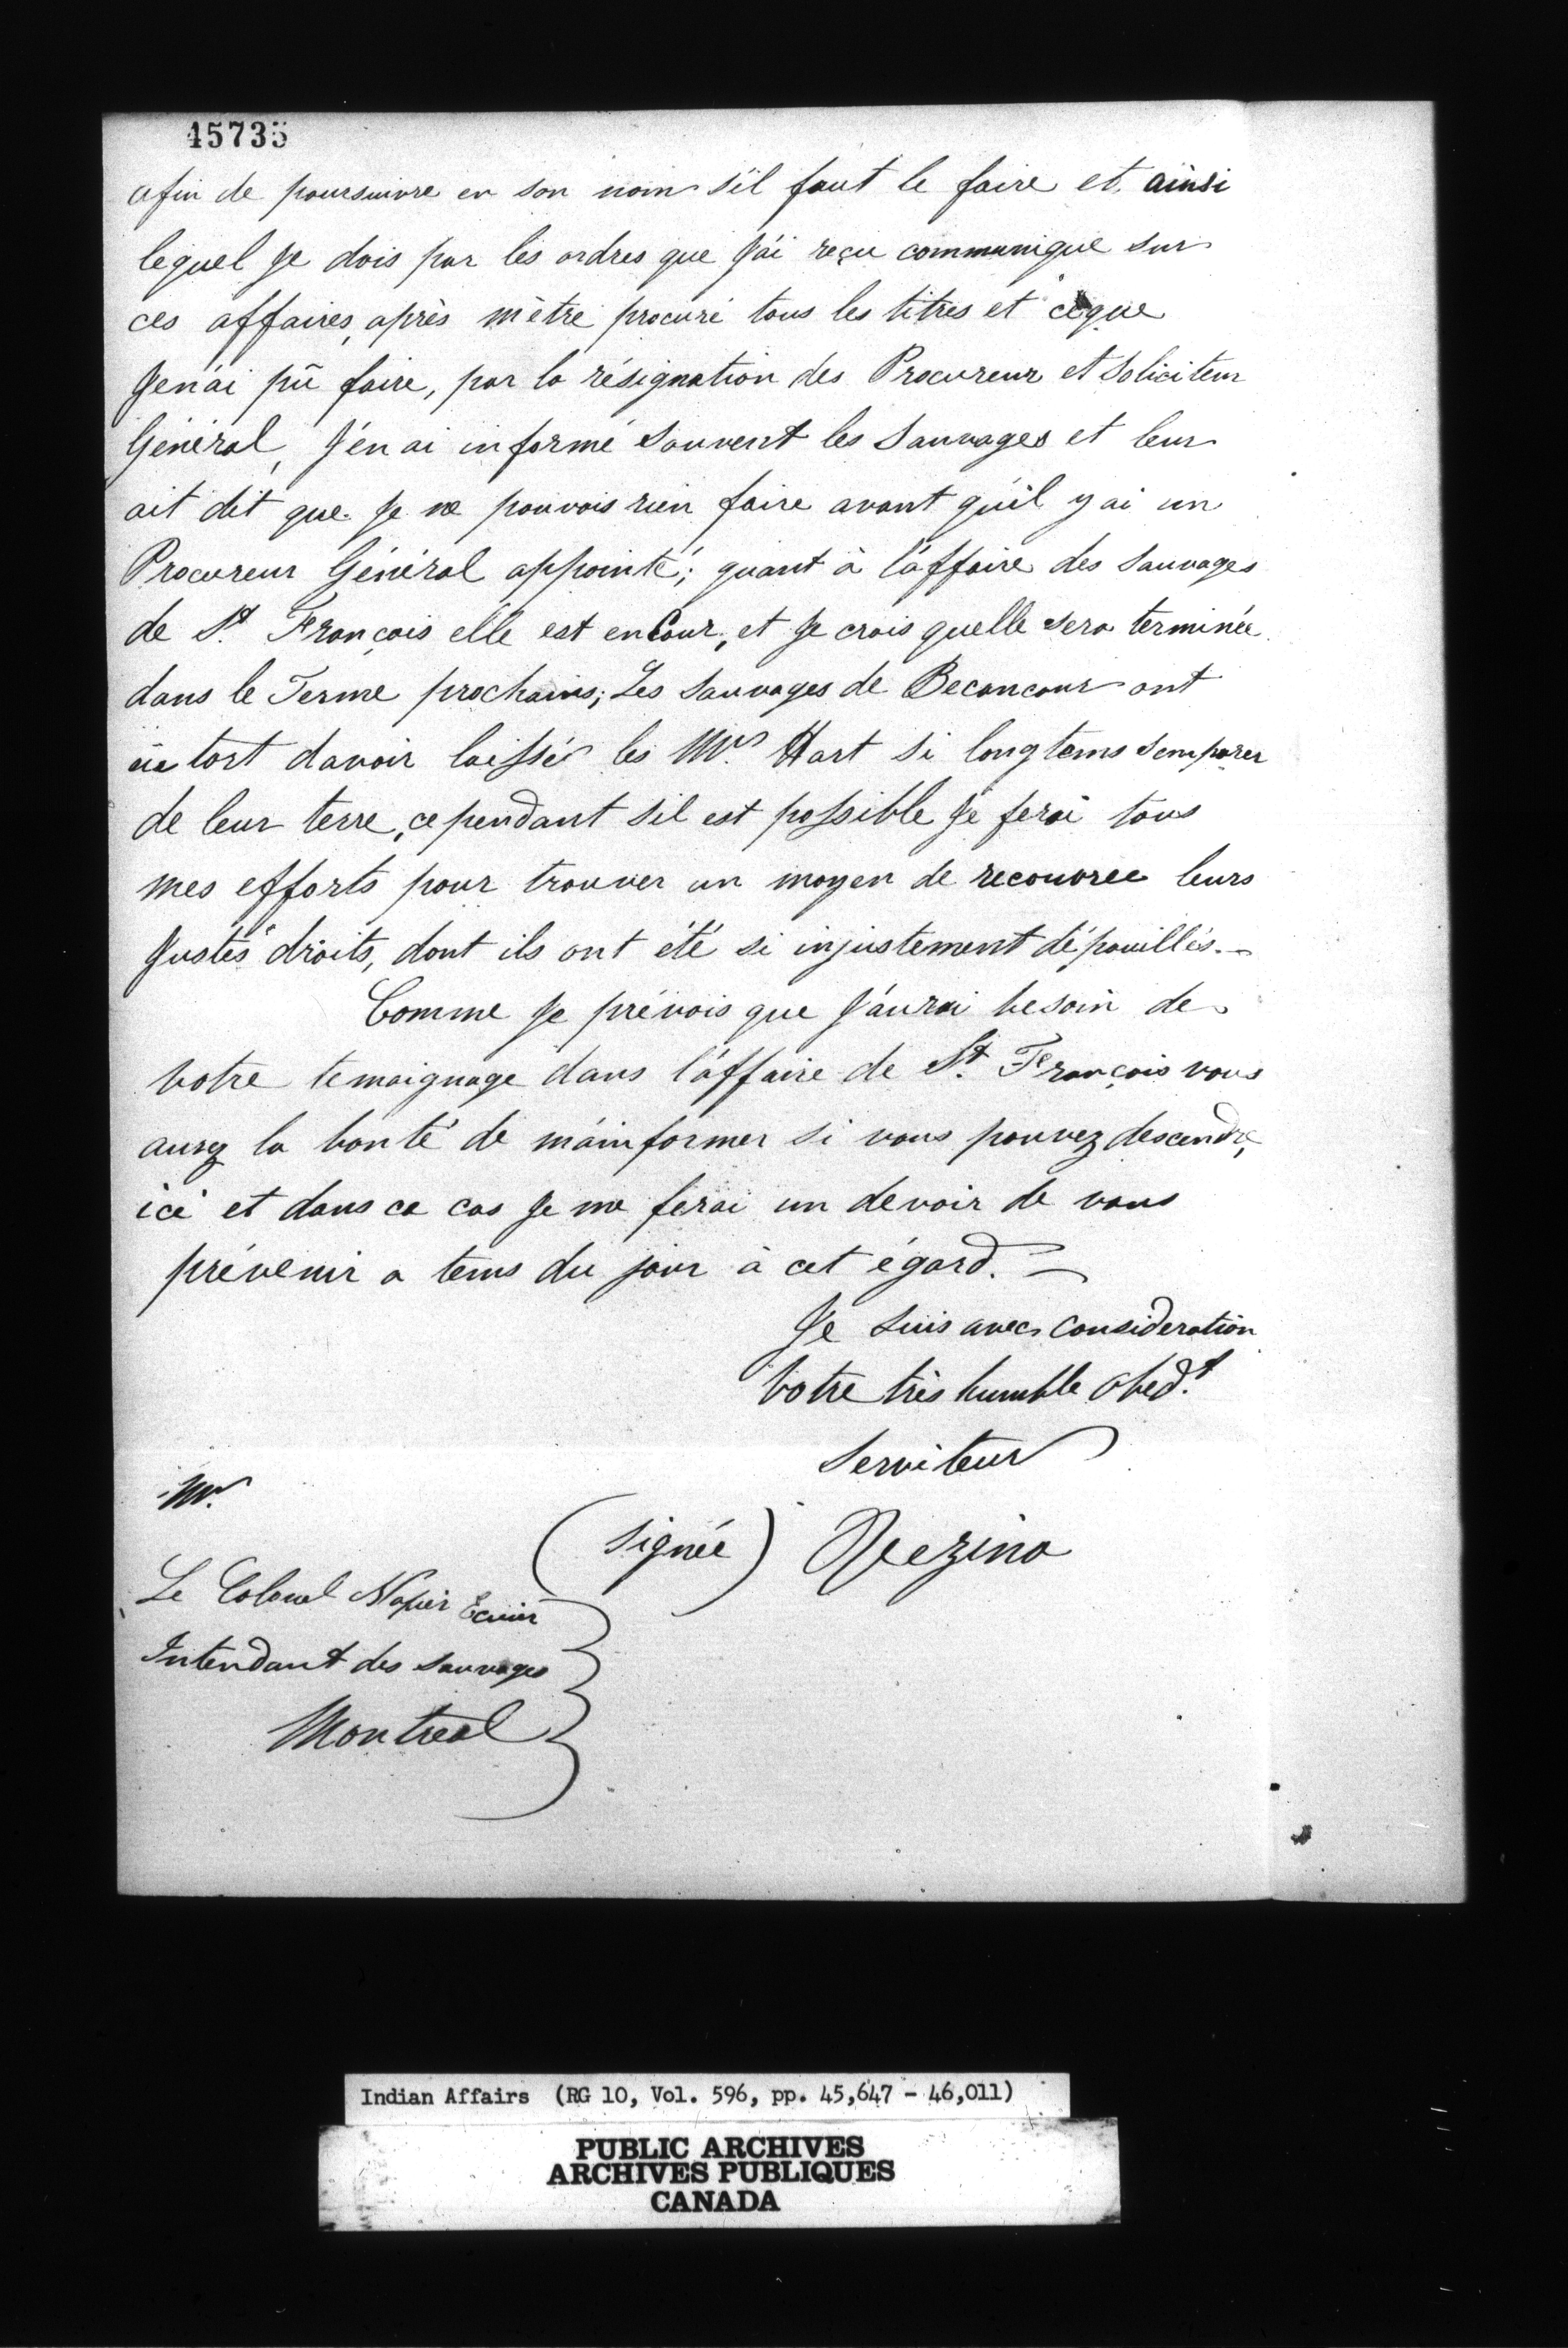 45735
afin de poursuivre en son nom s'il faut le faire et ainsi
lequel Je dois par les ordres que J'ai reçu communique sur
ces affaires, après mêtre procuré tous les titres et ceque
Jen'ai pû faire, par la résignation des Procureur et Soliciteur
Général, J'en ai informé souvent les Sauvages et leur
ait dit que Je ne pouvois rien faire avant qu'il y ai un
Procureur Général appointé; quant à l'affaire des Sauvages
de St. François elle est en Cour, et Je crois quelle sera terminée
dans le Terme prochains; Les Sauvages de Becancour ont
eu tort davoir laissés les Mrs. Hart si longtems semparer
de leur terre, cependant sil est possible Je ferai tous
mes efforts pour trouver un moyen de recouvree leurs
Justes droits, dont ils ont été si injustement dépouillés.-
Comme Je prévois que J'aurai besoin de
votre temoignage dans l'affaire de St. François vous
aurez la bonté de m'ainformer si vous pouvez descendre,
ici et dans ce cas Je me ferai un devoir de vous
prévenir a tems du jour à cet égard. =
Je suis avec consideration
Votre très humble obedt.
Serviteur
Mr.
(signée) Vezina
Le Colonel Napier Ecuier
Intendant des Sauvages
Montreal
Indian Affairs (RG 10, Vol. 596, pp. 45,647 - 46,011)
PUBLIC ARCHIVES
ARCHIVES PUBLIQUES
CANADA